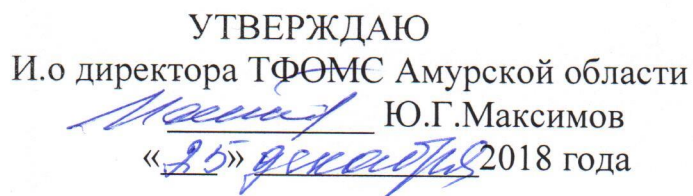 УТВЕРЖДАЮ
И.о директора ТФОМС Амурской области
Ю.Г.Максимов
«25» декабря 2018 года